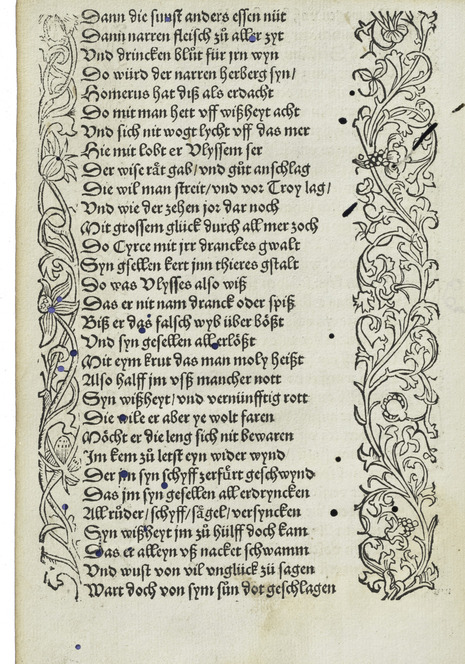 Dann die sunst anders essen nüt
Dann narren fleisch zů aller zyt
Vnd drincken blůt für jrn wyn
Do würd der narren herberg syn/
Homerus hat diß als erdacht
Do mit man hett vff wißheyt acht
Vnd sich nit wogt lycht vff das mer
Hie mit lobt er Vlyssem ser
Der wise rät gab/vnd gůt anschlag
Die wil man streit/vnd vor Troy lag/
Vnd wie der zehen jor dar noch
Mit grossem glück durch all mer zoch
Do Cyrce mit jrr dranckes gwalt
Syn gsellen kert jnn thieres gstalt
Do was Vlysses also wiß
Das er nit nam dranck oder spiß
Biß er das falsch wyb über bößt
Vnd syn gesellen all erlößt
Mit eym krut das man moly heißt
Also halff jm vß mancher nott
Syn wißheyt/vnd vernünfftig rott
Die wile er aber ye wolt faren
Möcht er die leng sich nit bewaren
Im kem zů letst eyn wider wynd
Der jm syn schyff zerfůrt geschwynd
Das jm syn gesellen all erdryncken
All růder/schyff/sägel/versyncken
Syn wißheyt jm zů hülff doch kam
Das er alleyn vß nacket schwamm
Vnd wust von vil vnglück zů sagen
Wart doch von sym sůn dot geschlagen